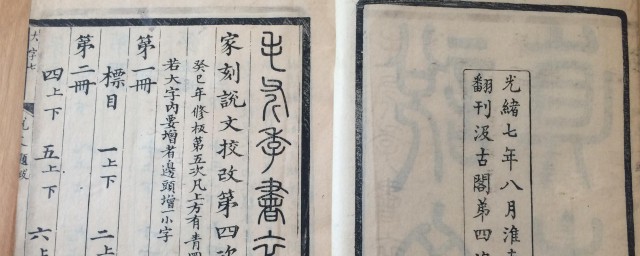 光緒七年八月淮
翻刊汲古閣弟四次
毛 季書
家刻說文校改第四次
癸巳年修板第五次凡上方有青
若大字內要增者邊頭增一小字
第一冊
標目 一上下 二上
第二冊
四上下 五上下 六上
大字七